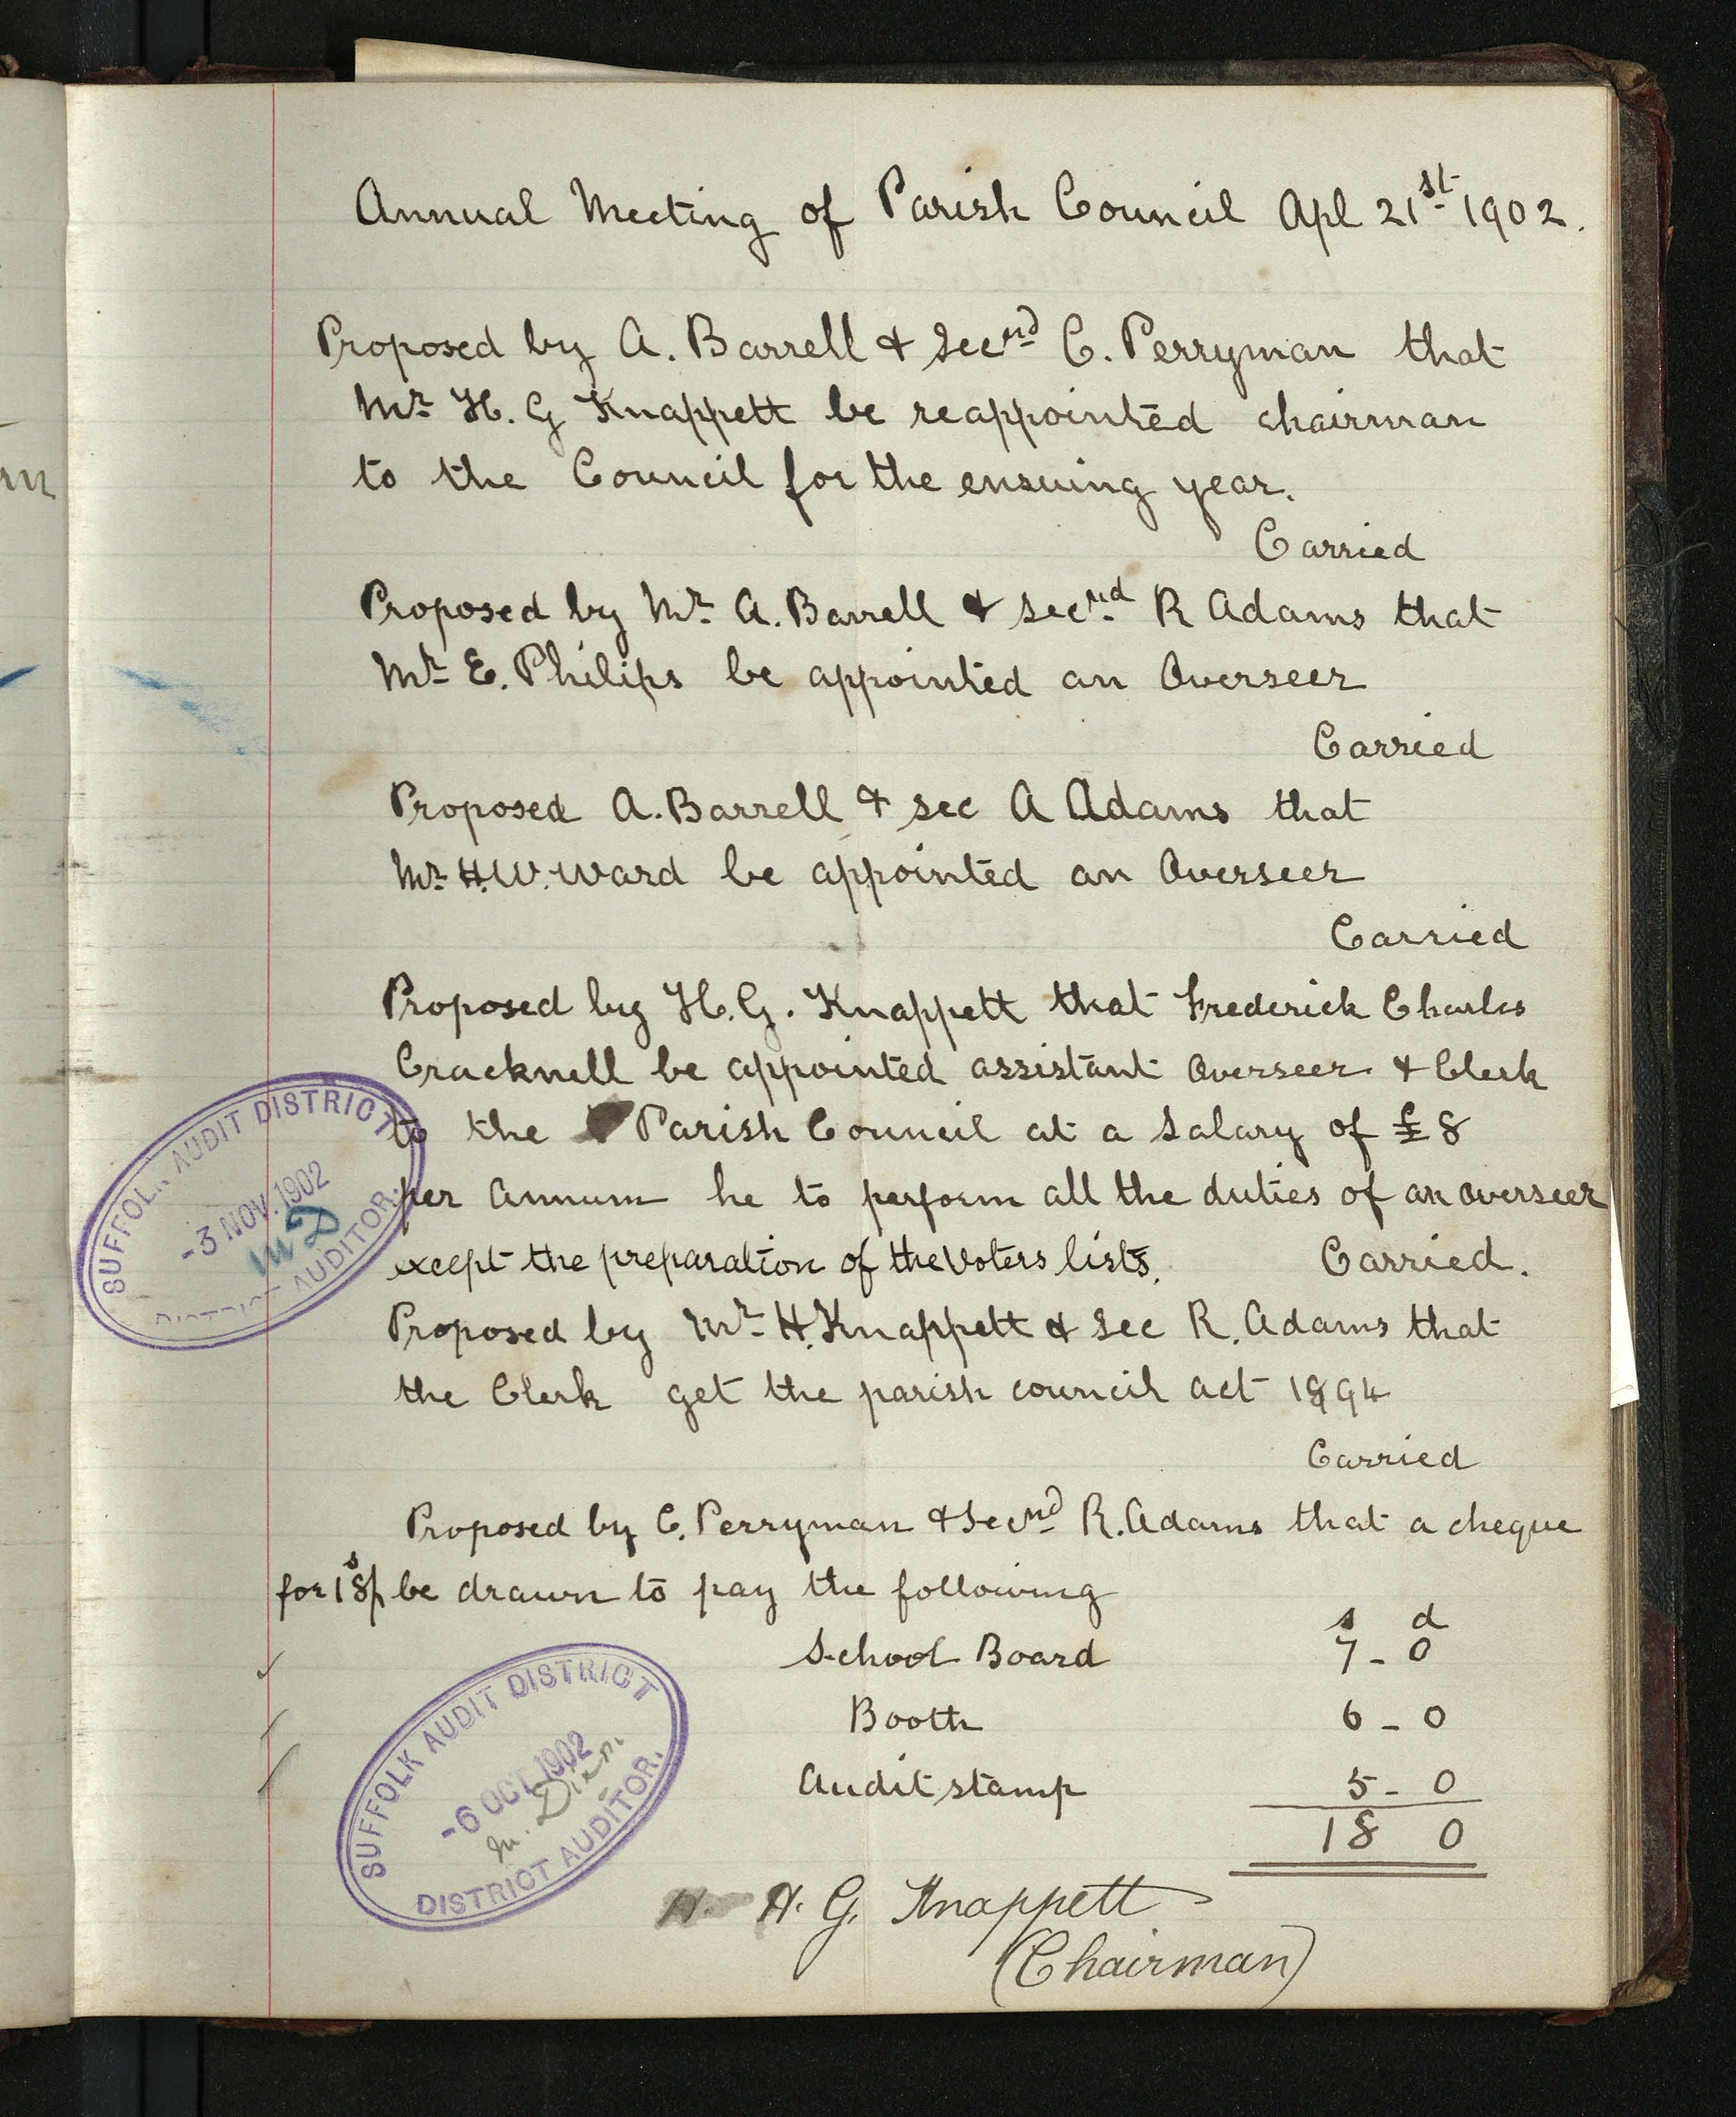 Annual Meeting of Parish Council Apl 21st 1902.
Proposed by A. Barrell & Secnd C. Perryman that
Mr H. G Knappett be reappointed chairman
to the Council for the ensuing year.
Carried
Proposed by Mr A. Barrell & secnd R Adams that
Mr E. Philips be appointed an Overseer
Carried
Proposed A. Barrell & sec A Adams that
Mr H.W. Ward be appointed an Overseer
Carried
Proposed by H.G. Knappett that Frederick Charles
Cracknell be appointed assistant Overseer & Clerk
to the Parish Council at a Salary of £8
per annum he to perform all the duties of an overseer
except the preparation of the Voters lists. Carried.
Proposed by Mr H. Knappett & Sec R. Adams that
the Clerk get the parish council act 1894
Carried
Proposed by C. Perryman & Secnd R. Adams that a cheque
for 18s/ be drawn to pay the following
s d
School Board 7 - 0
Booth 6 - 0
Audit stamp 5 - 0
18 0
H. H. G. Knappett
(Chairman)
SUFFOLK AUDIT DISTRICT
-3 NOV. 1902
M D
DISTRICT AUDITOR.
SUFFOLK AUDIT DISTRICT
-6 OCT 1902
DISTRICT AUDITOR.